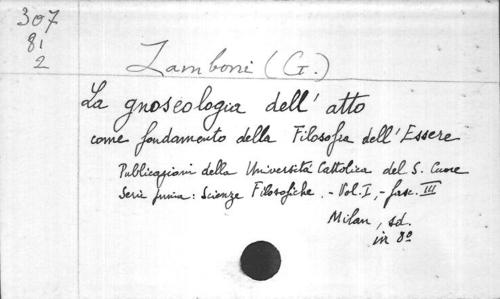 307
81
2
Zamboni (G.)
La gnoseologia dell' atto
come fondamento della Filosofia dell' Essere
Publicazioni della Università Cattolica del S. Cuore
Serie prima: Scienze Filosofiche. - Vol. I, - fasc. III
Milan, sd.
in 8º